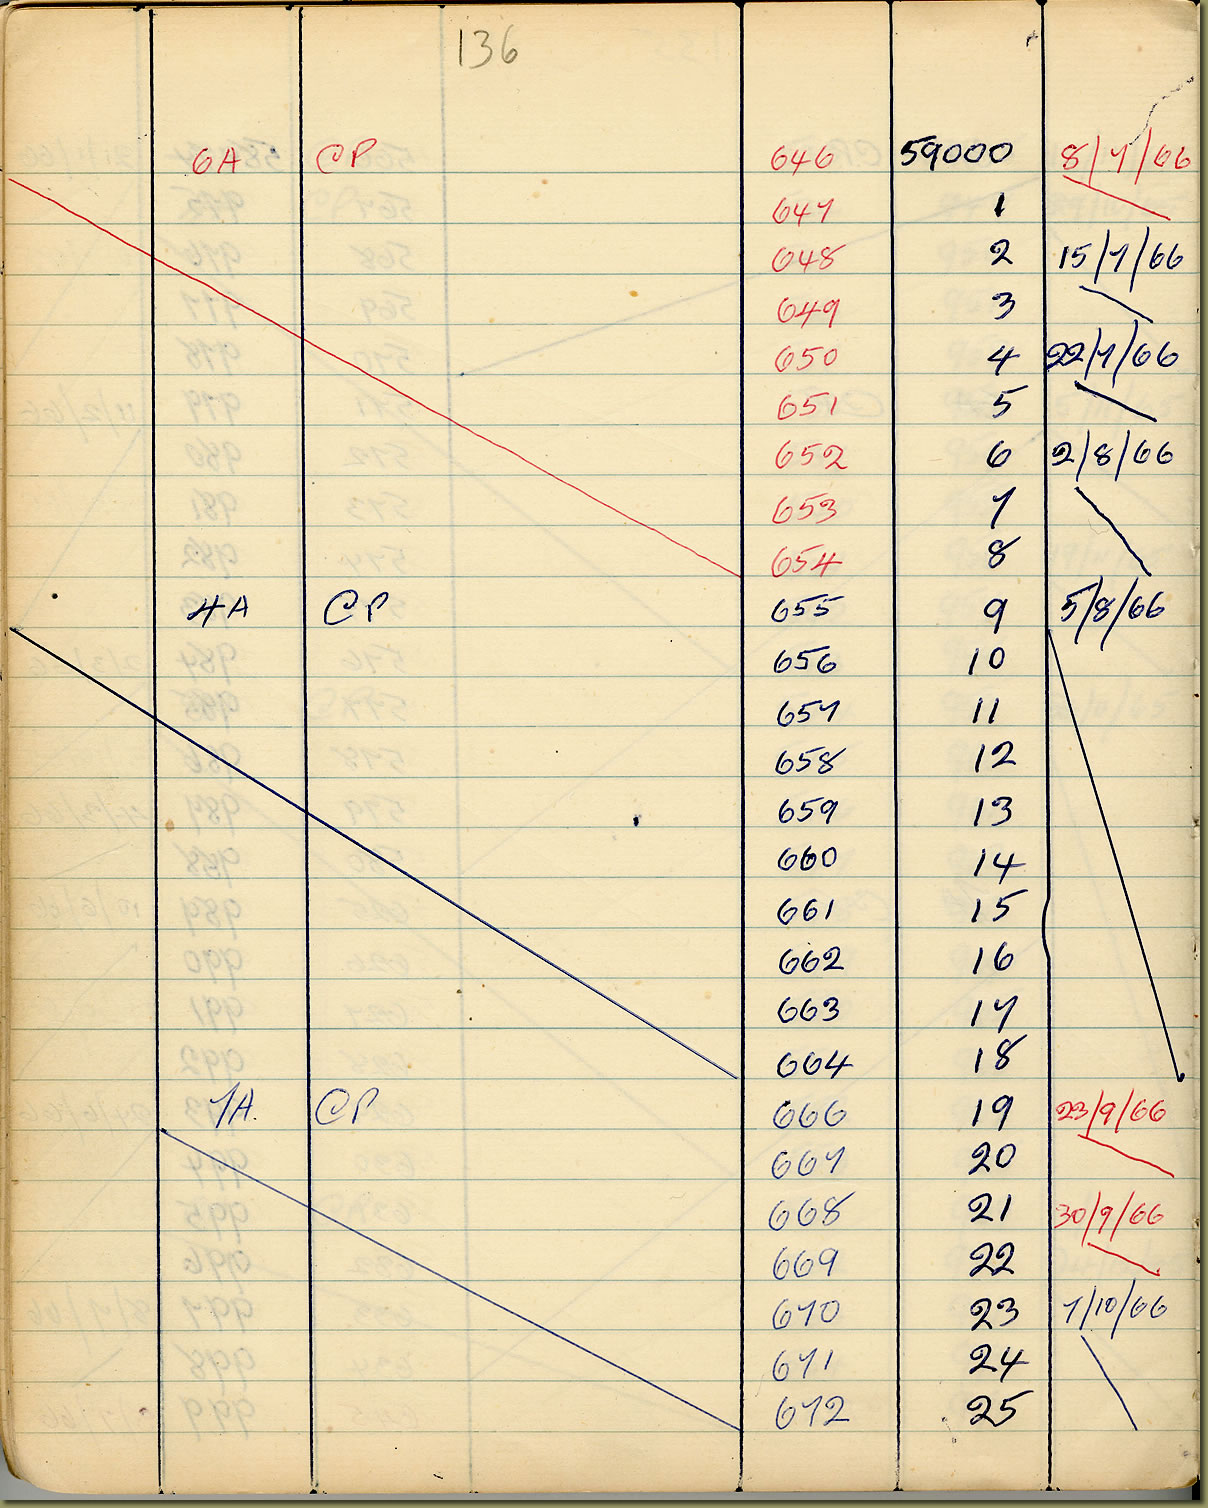 136
6A CP 646 59000 8/7/66
647 1
648 2 15/7/66
649 3
650 4 22/7/66
651 5
652 6 2/8/66
653 7
654 8
4A CP 655 9 5/8/66
656 10
657 11
658 12
659 13
660 14
661 15
662 16
663 17
664 18
7A. CP 666 19 23/9/66
667 20
668 21 30/9/66
669 22
670 23 7/10/66
671 24
672 25